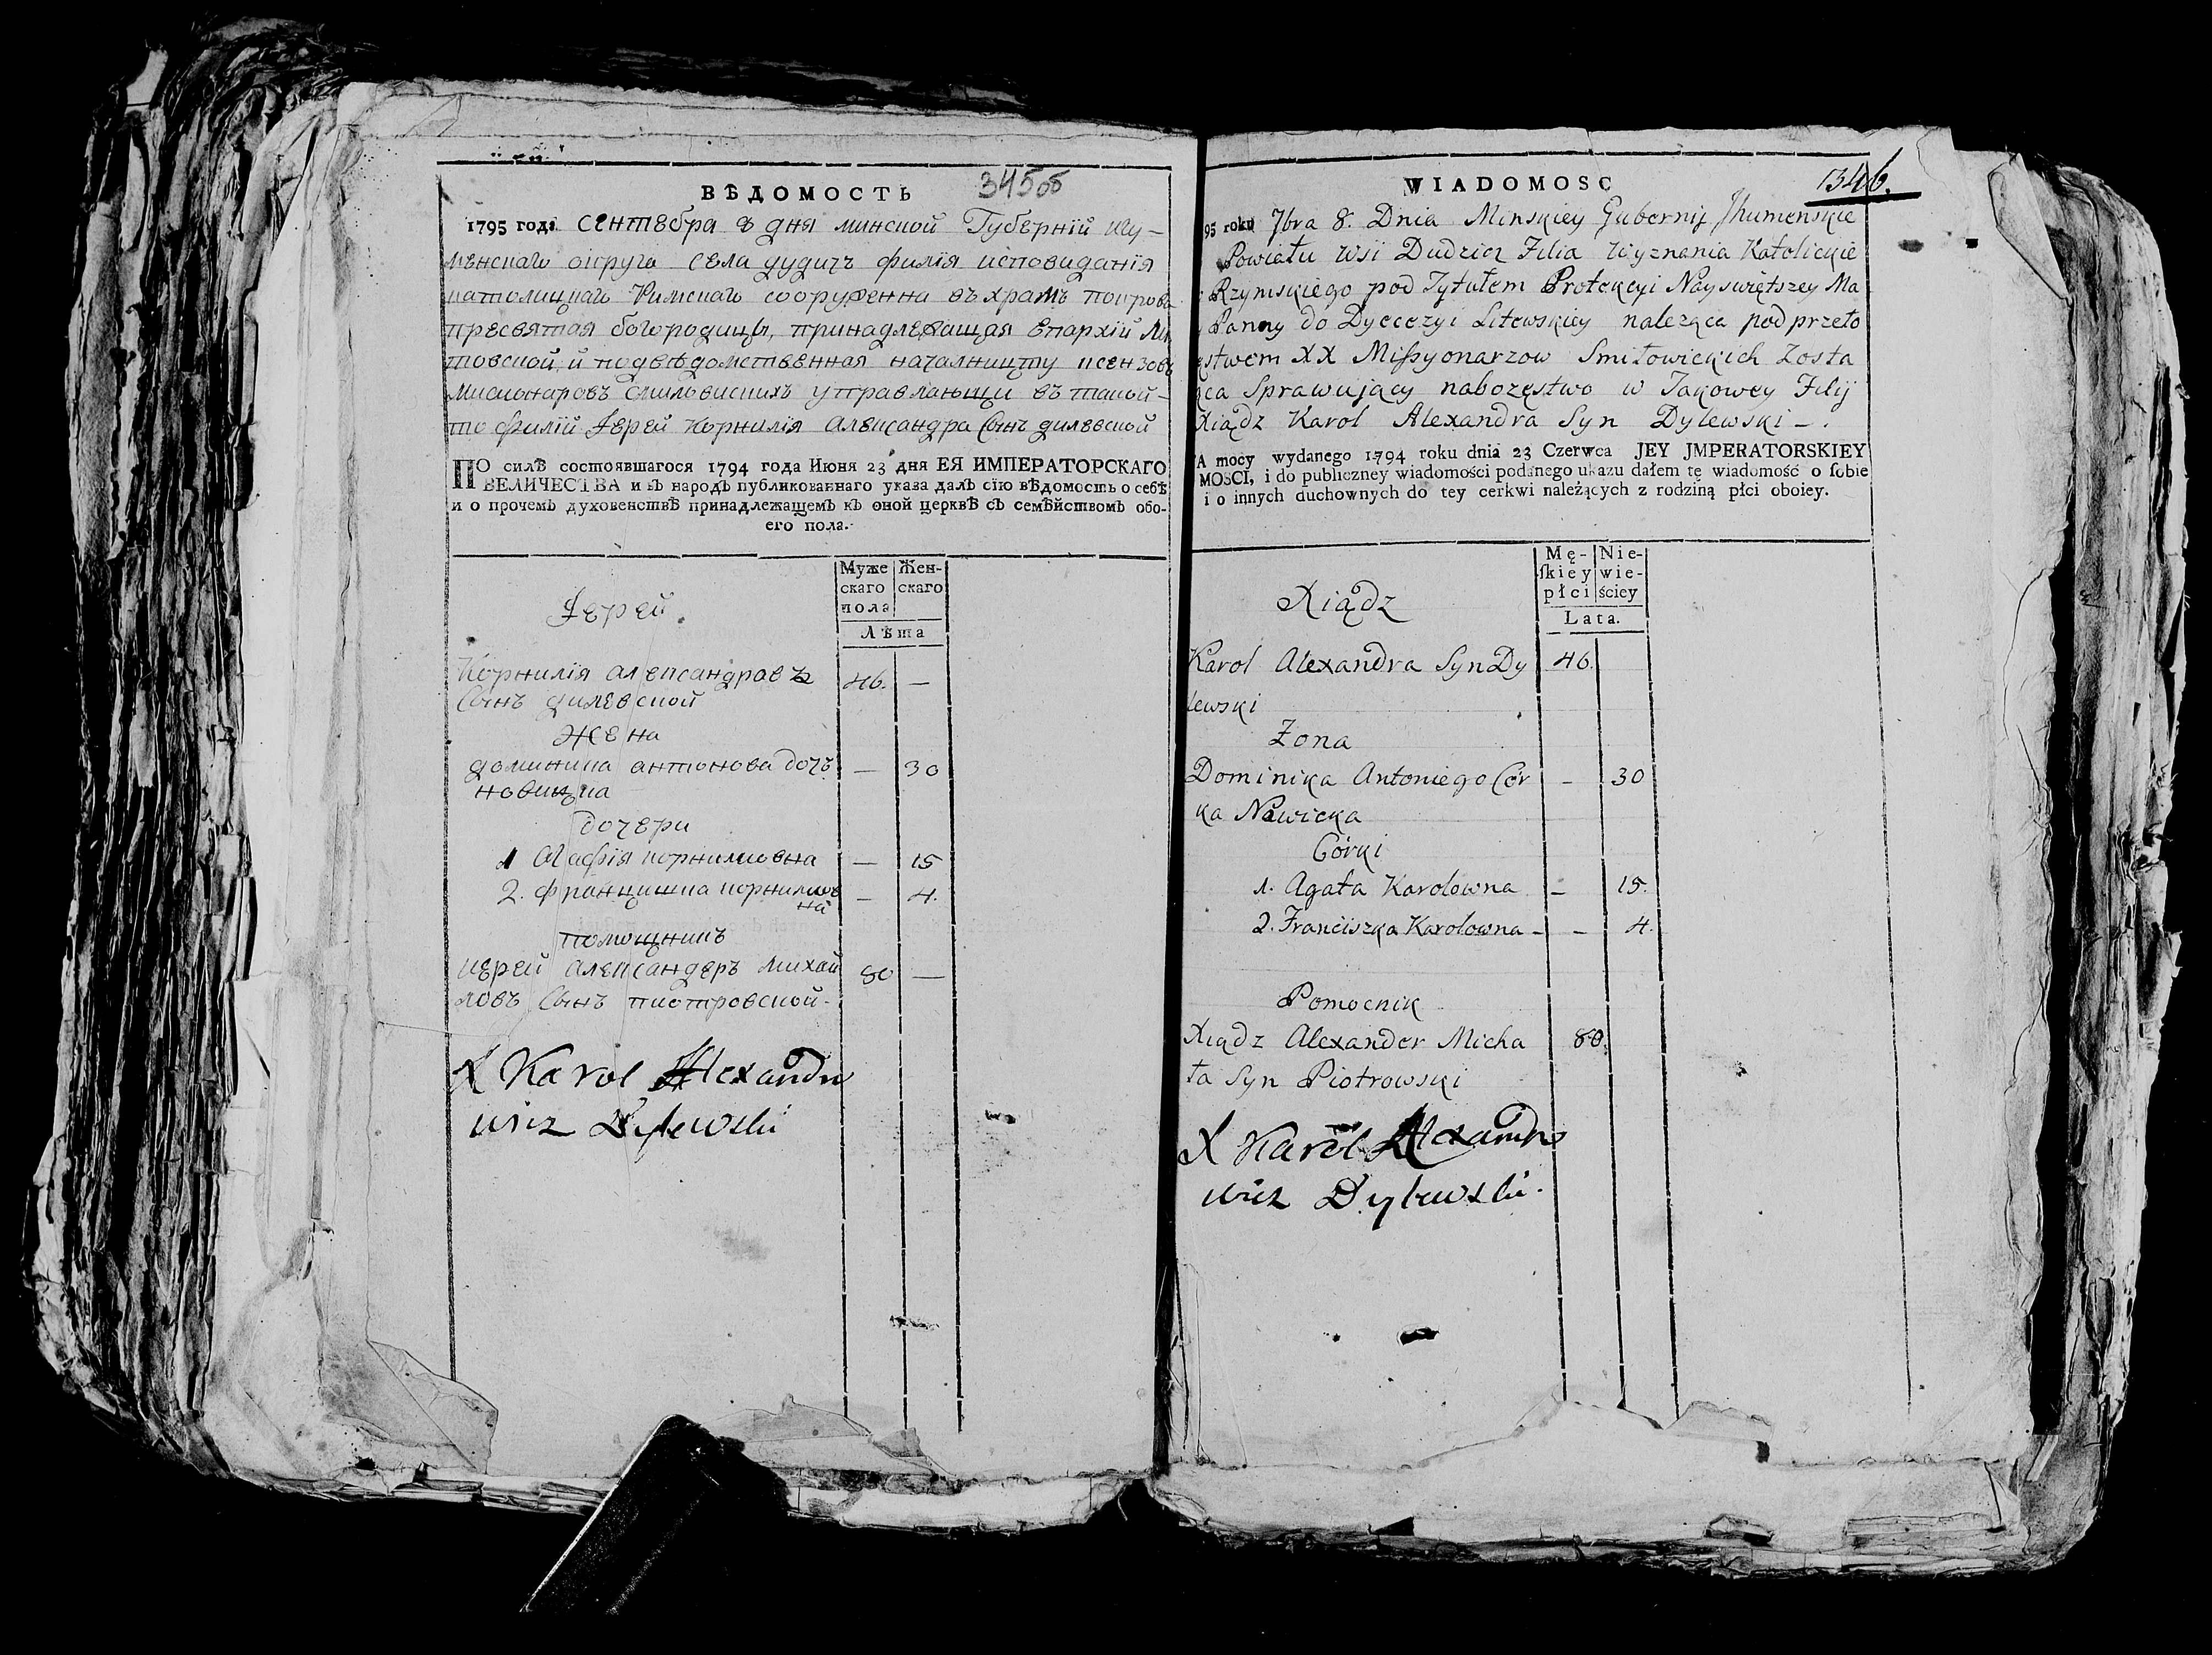 ВѢДОМОСТЬ 345об
1795 года Сентебра 8 дня минской Губернїй игу-
менскаго округа Села дудичъ филїя исповиданїя
католицкаго Римскаго сооруженна въ храмъ покрова
пресвятая богородицы, принадлежащая Епархїй Ли
товской, й подвѣдомственная началництву ксензовъ
мисионаровъ Смиловискихъ управлающи въ такой-
то филїй Іерей Корнилїя Александра Сынъ дилевской
ПО силѣ состоявшагося 1794 года Июня 23 дня ЕЯ ИМПЕРАТОРСКАГО
ВЕЛИЧЕСТВА и въ народъ публикованнаго указа далъ сїю вѣдомость о себѣ
и о прочемъ духовенствѣ принадлежащемъ къ оной церквѣ съ семѣйствомъ обо-
его пола.
Муже Жен-
скаго скаго
пола
Іерей.
Лѣта
Корнилїя александровъ 46. —
Сынъ дилевской
Жена
доминика антонова дочъ — 30
новицка
дочери
1 Агафїя корниловна — 15
2. францишка корнилов — 4.
на
помощникъ
иерей александеръ михай 80 —
ловъ Сынъ пиотровской-
X Karol Alexandro
wicz Dylewski
WIADOMOSC 1346.
95 roku 7bra 8. Dnia Minskiey Gubernij Jhumenskie
Powiatu Wsi Dudzicz Filia Wyznania Katolickie
Rzymskiego pod Tytułem Protekcyi Nayswiętszey Ma
Panny do Dyecezyi Litewskiey należąca pod przeło
ęstwem XX Missyonarzow Smiłowickich Zosta
ąca Sprawujący nabozęstwo w Takowey Filij
Xiądz Karol Alexandra Syn Dylewski -.
A mocy wydanego 1794 roku dnia 23 Czerwca JEY JMPERATORSKIEY
MOSCI, i do publiczney wiadomości podanego ukazu dałem tę wiadomość o sobie
i o innych duchownych do tey cerkwi należących z rodziną płci oboiey.
Mę- Nie-
skiey wie-
płci ściey
Xiądz
Lata.
Karol Alexandra Syn Dy 46.
lewski
Żona
Dominika Antoniego Cór - 30
ka Nowicka
Córki
1. Agata Karolowna - 15.
2. Franciszka Karolowna - - 4.
Pomocnik
Xiądz Alexander Micha 80.
ła Syn Piotrowski
X Karol Alexandro
wicz Dylewski.